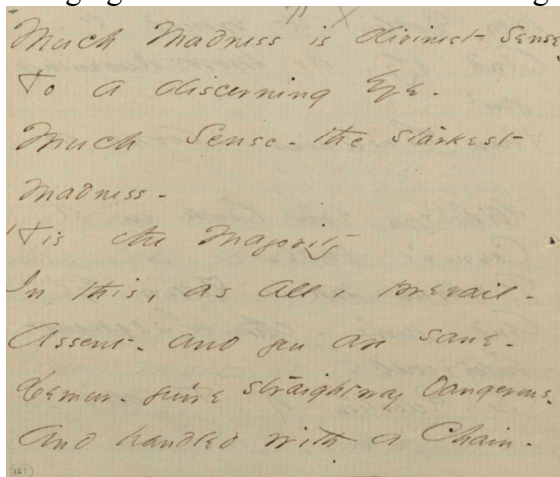 Much Madness is divinest Sense
To a discerning Eye -
Much Sense - the starkest
Madness -
'Tis the Majority
In this, as all, prevail -
Assent - and you are sane -
Demur - you're straightway dangerous
And handled with a Chain -